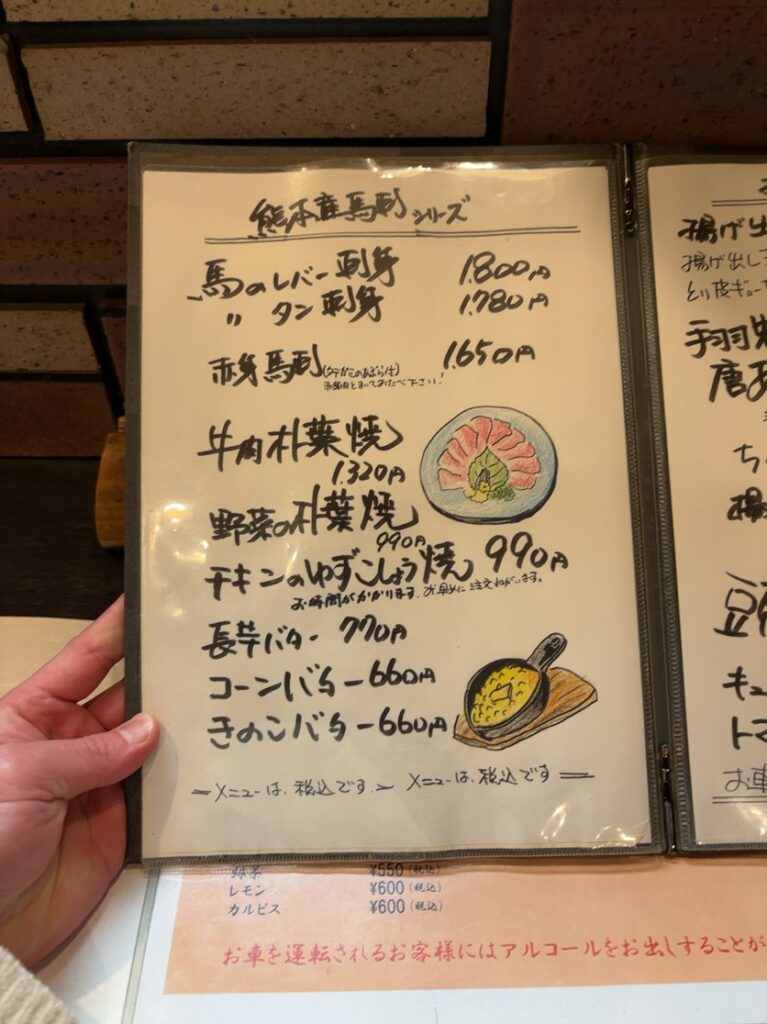 熊本産馬刺シリーズ
馬のレバー刺身 1.800円
〃 タン刺身 1.780円
赤身馬刺 1.650円
牛肉朴葉焼
1.320円
野菜の朴葉焼
990円
チキンのゆずこしょう焼 990円
お時間がかかります。お早めに注文ねがいます。
長芋バター 770円
コーンバター 660円
きのこバター 660円
メニューは、税込です。メニューは、税込です
緑茶 ¥550(税込)
レモン ¥600(税込)
カルピス ¥600(税込)
お車を運転されるお客様にはアルコールをお出しすることが
揚げ出
揚げ出し
とり皮ギョー
手羽
唐あ
ち
揚
豆
キュ
トマ
お車